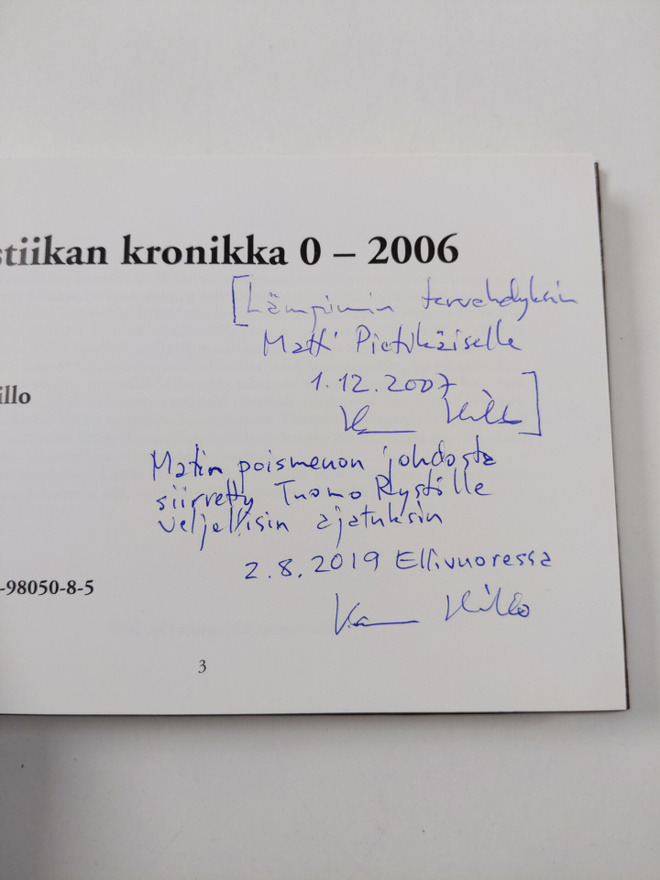 stiikan kronikka 0 – 2006
[Lämpimin tervehdyksin
Matti Pietikäiselle
illo
1.12.2007
]
Matin poismenon johdosta
siirretty Tuomo Rystölle
veljellisin ajatuksin
2.8.2019 Ellivuoressa
-98050-8-5
3